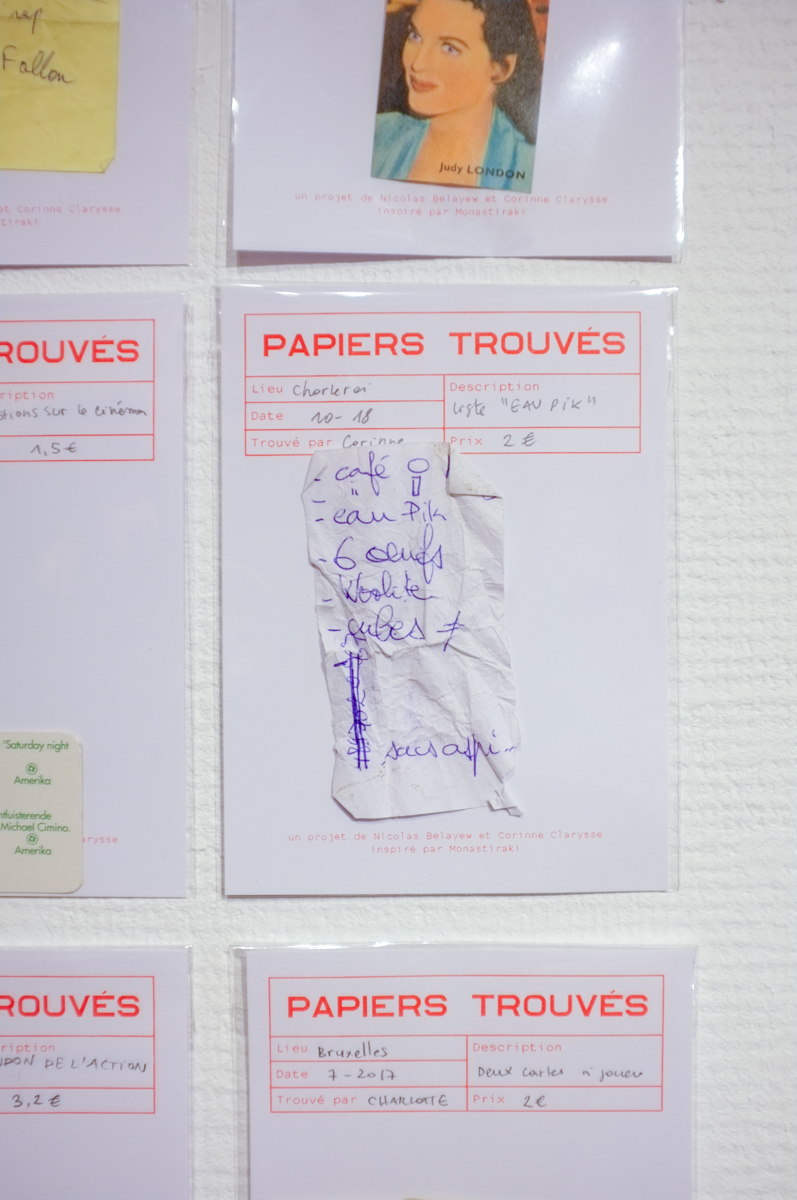 Fallon
et Corinne Clarysse
tiraki
Judy LONDON
un projet de Nicolas Belayew et Corinne Clarysse
inspiré par Monastiraki
ROUVÉS
ription
stions sur le cinéma
1,5 €
"Saturday night
Amerika
tfluisterende
Michael Cimino.
Amerika
arysse
PAPIERS TROUVÉS
Lieu Charleroi
Description
liste "EAU PIK"
Date 10-18
Trouvé par Corinne
Prix 2 €
- café
- "
- eau Pik
- 6 œufs
- Woolite
- cubes ≠
sacs aspi...
un projet de Nicolas Belayew et Corinne Clarysse
inspiré par Monastiraki
ROUVÉS
ription
DE L'ACTION
3,2 €
PAPIERS TROUVÉS
Lieu Bruxelles
Description
Deux cartes à jouer
Date 7-2017
Trouvé par CHARLOTTE
Prix 2€